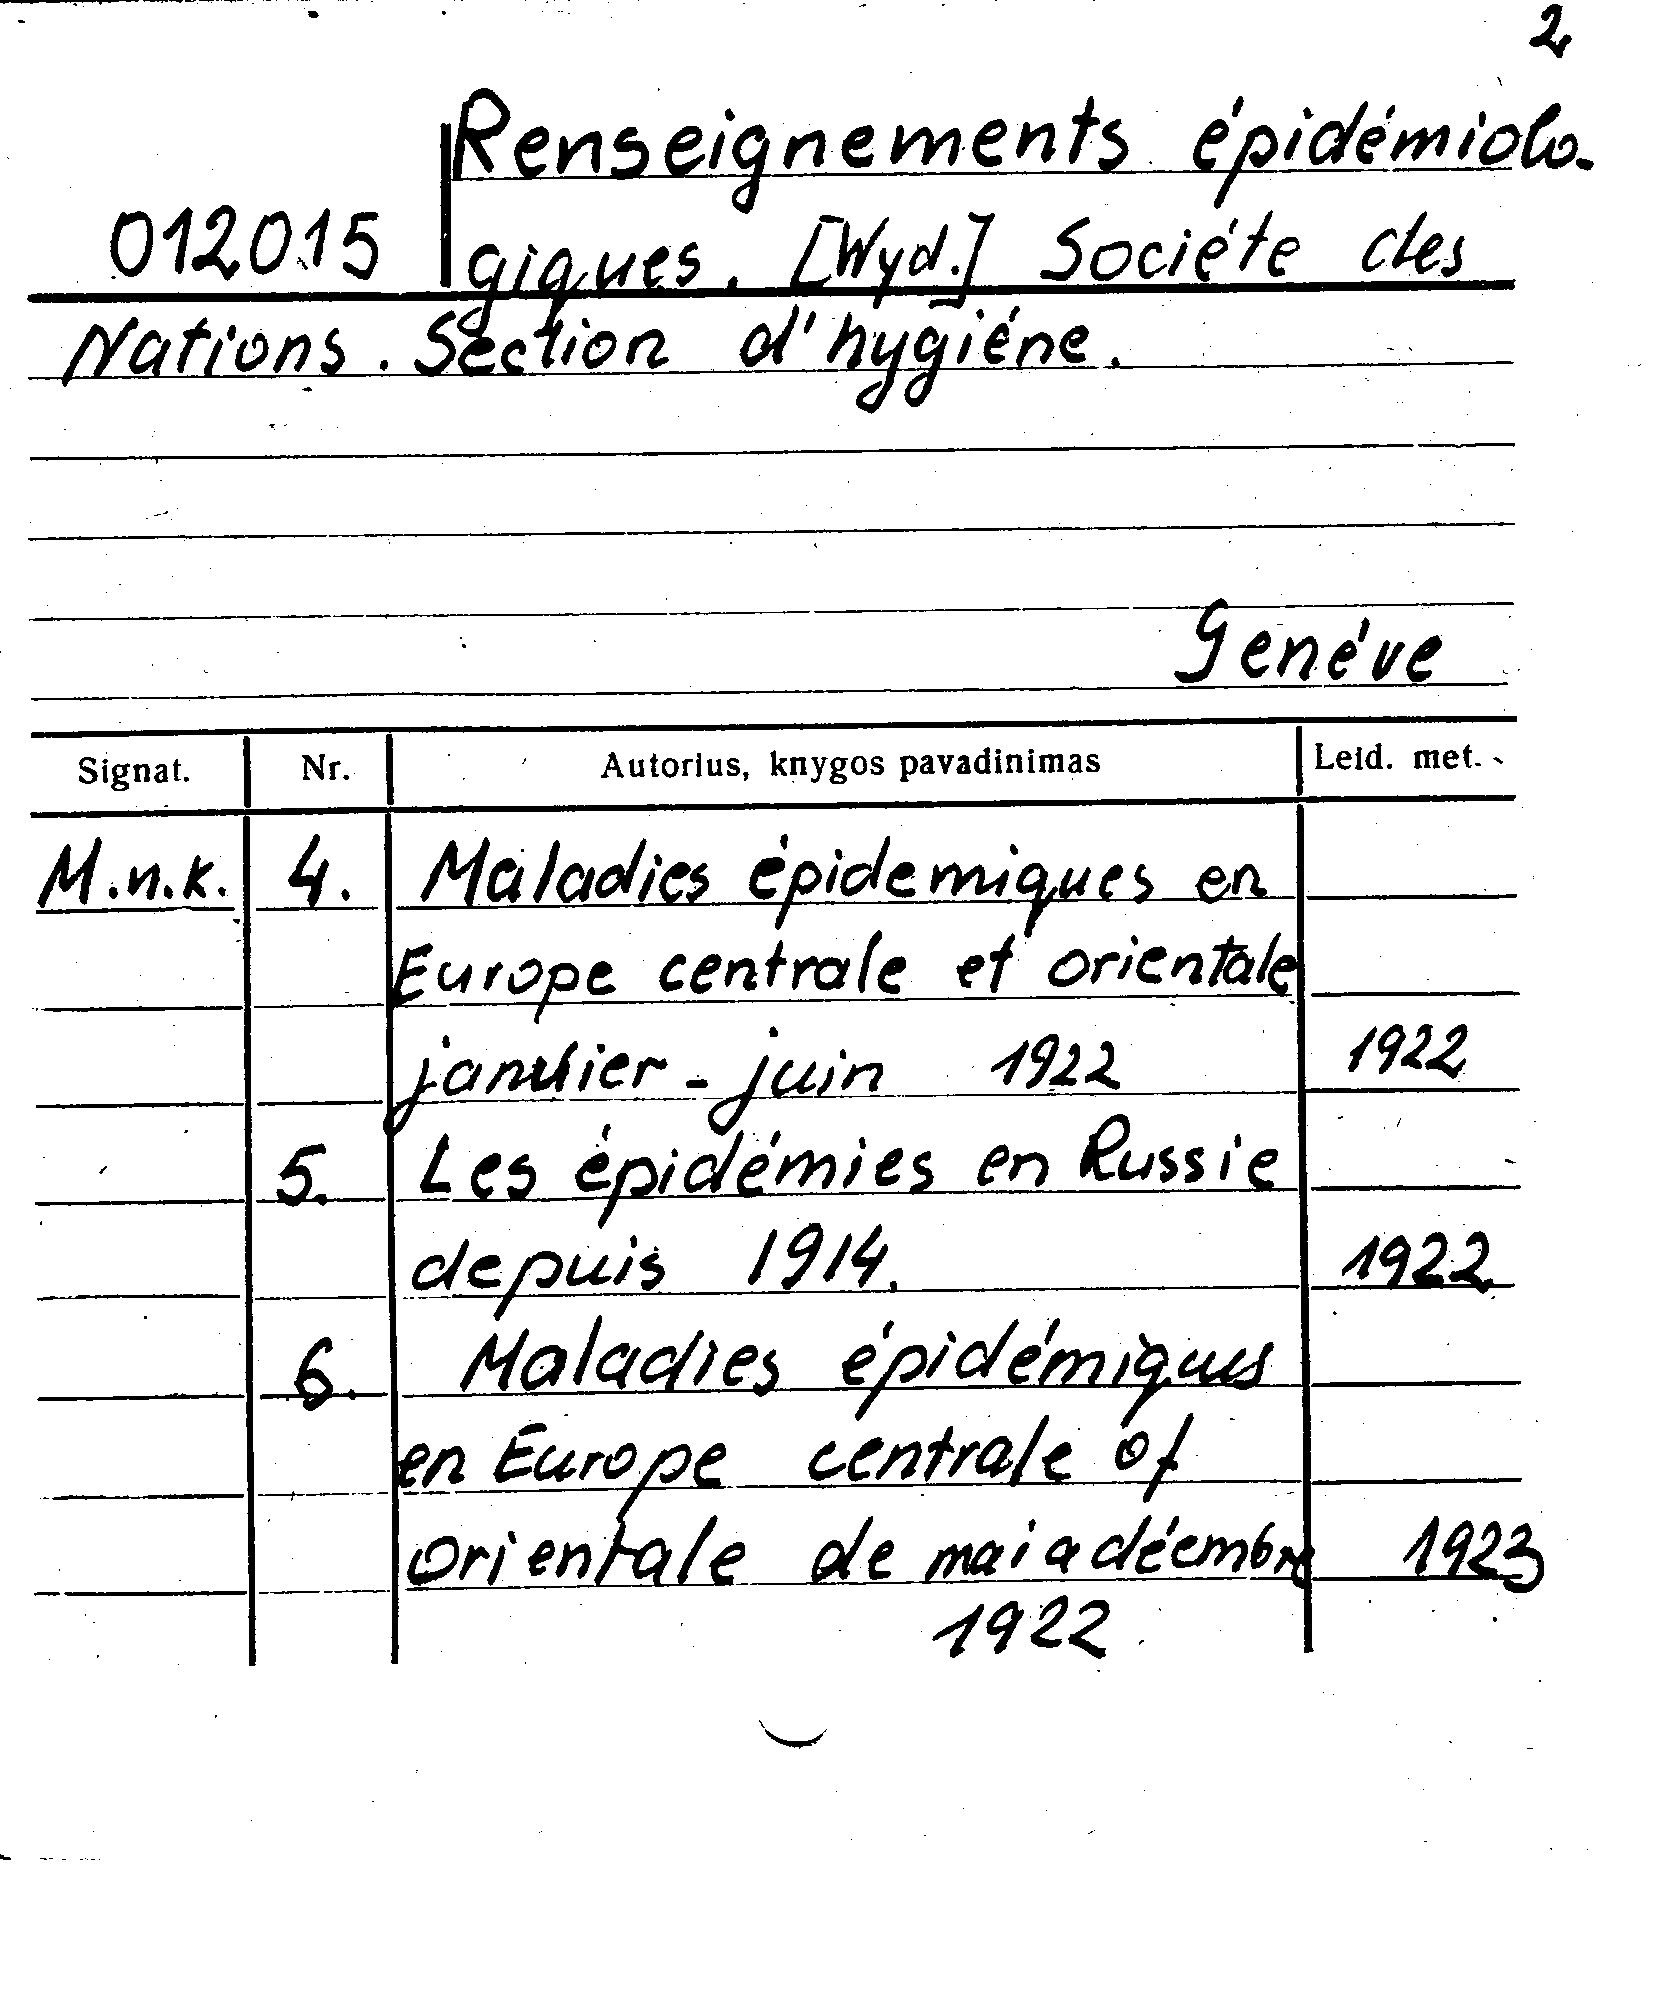 2
Renseignements épidémiolo-
012015 giques. [Wyd.] Sociéte des
Nations. Section d'hygiéne.
Genéve
Signat. Nr. Autorius, knygos pavadinimas Leid. met.
M.n.k. 4. Maladies épidemiques en
Europe centrale et orientale
janvier - juin 1922 1922
5. Les épidémies en Russie
depuis 1914. 1922
6. Maladies épidémiques
en Europe centrale of
orientale de mai a déembre 1923
1922